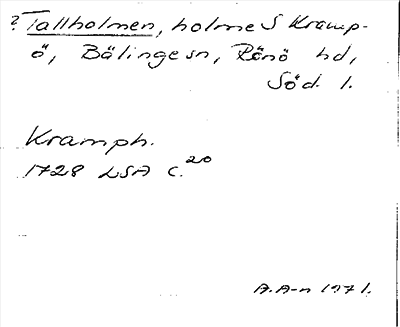 ? Tallholmen, holme S Kramp-
ö, Bälinge sn, Rönö hd,
Söd. l.
Kramph.
1728 LSA C.20
A.A-n 1971.